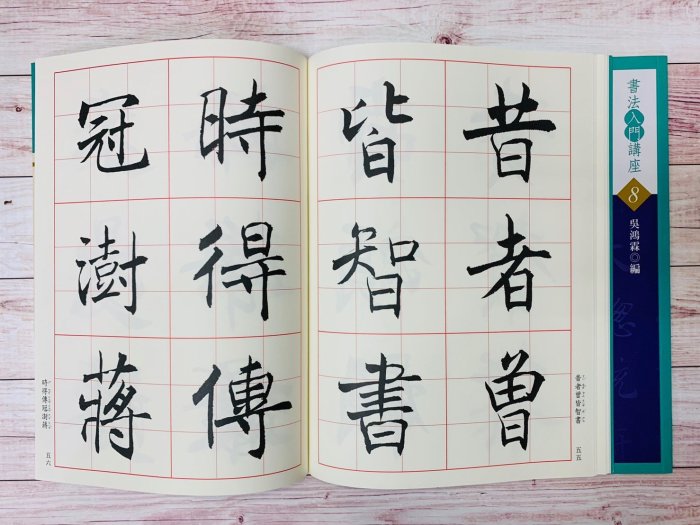 書法入門講座
8
吳鴻霖◎編
昔者曾
皆智書
昔者曾皆智書
五五
時得傳
冠澍蔣
時得傳冠澍蔣
五六